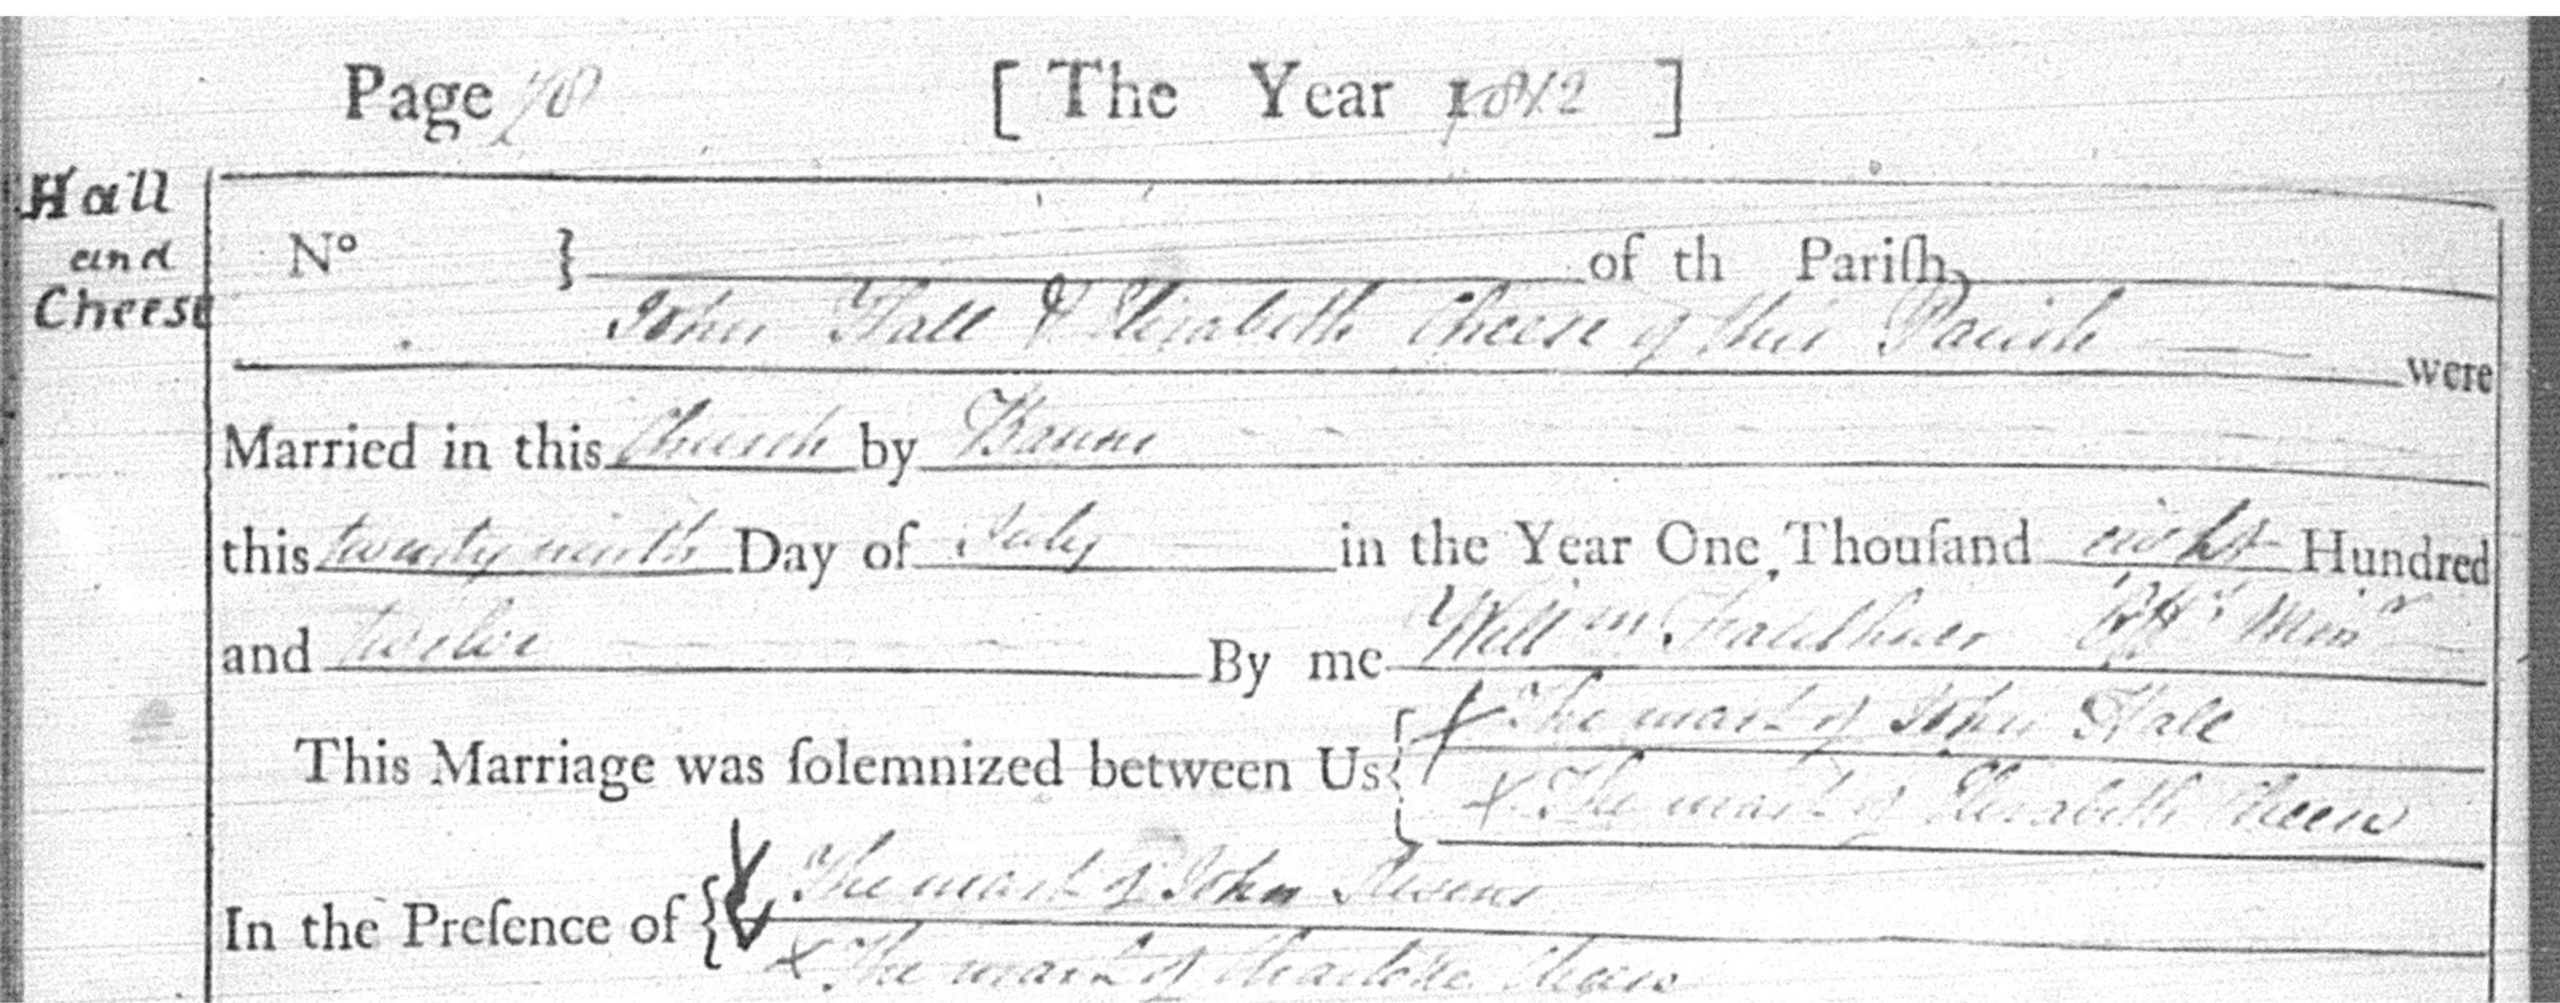 Page 78 [ The Year 1812 ]
Hall
and
Cheese
No } of th Pariſh
John Hall & Elizabeth Cheese of this Parish
were
Married in this Church by Banns
this twenty ninth Day of July in the Year One Thouſand eight Hundred
and twelve By me Willm Faulkner Offg Minr
The mark of John Hall
This Marriage was ſolemnized between Us {
X The mark of Elizabeth Cheese
The mark of John Stevens
In the Preſence of {
X The mark of Charlotte